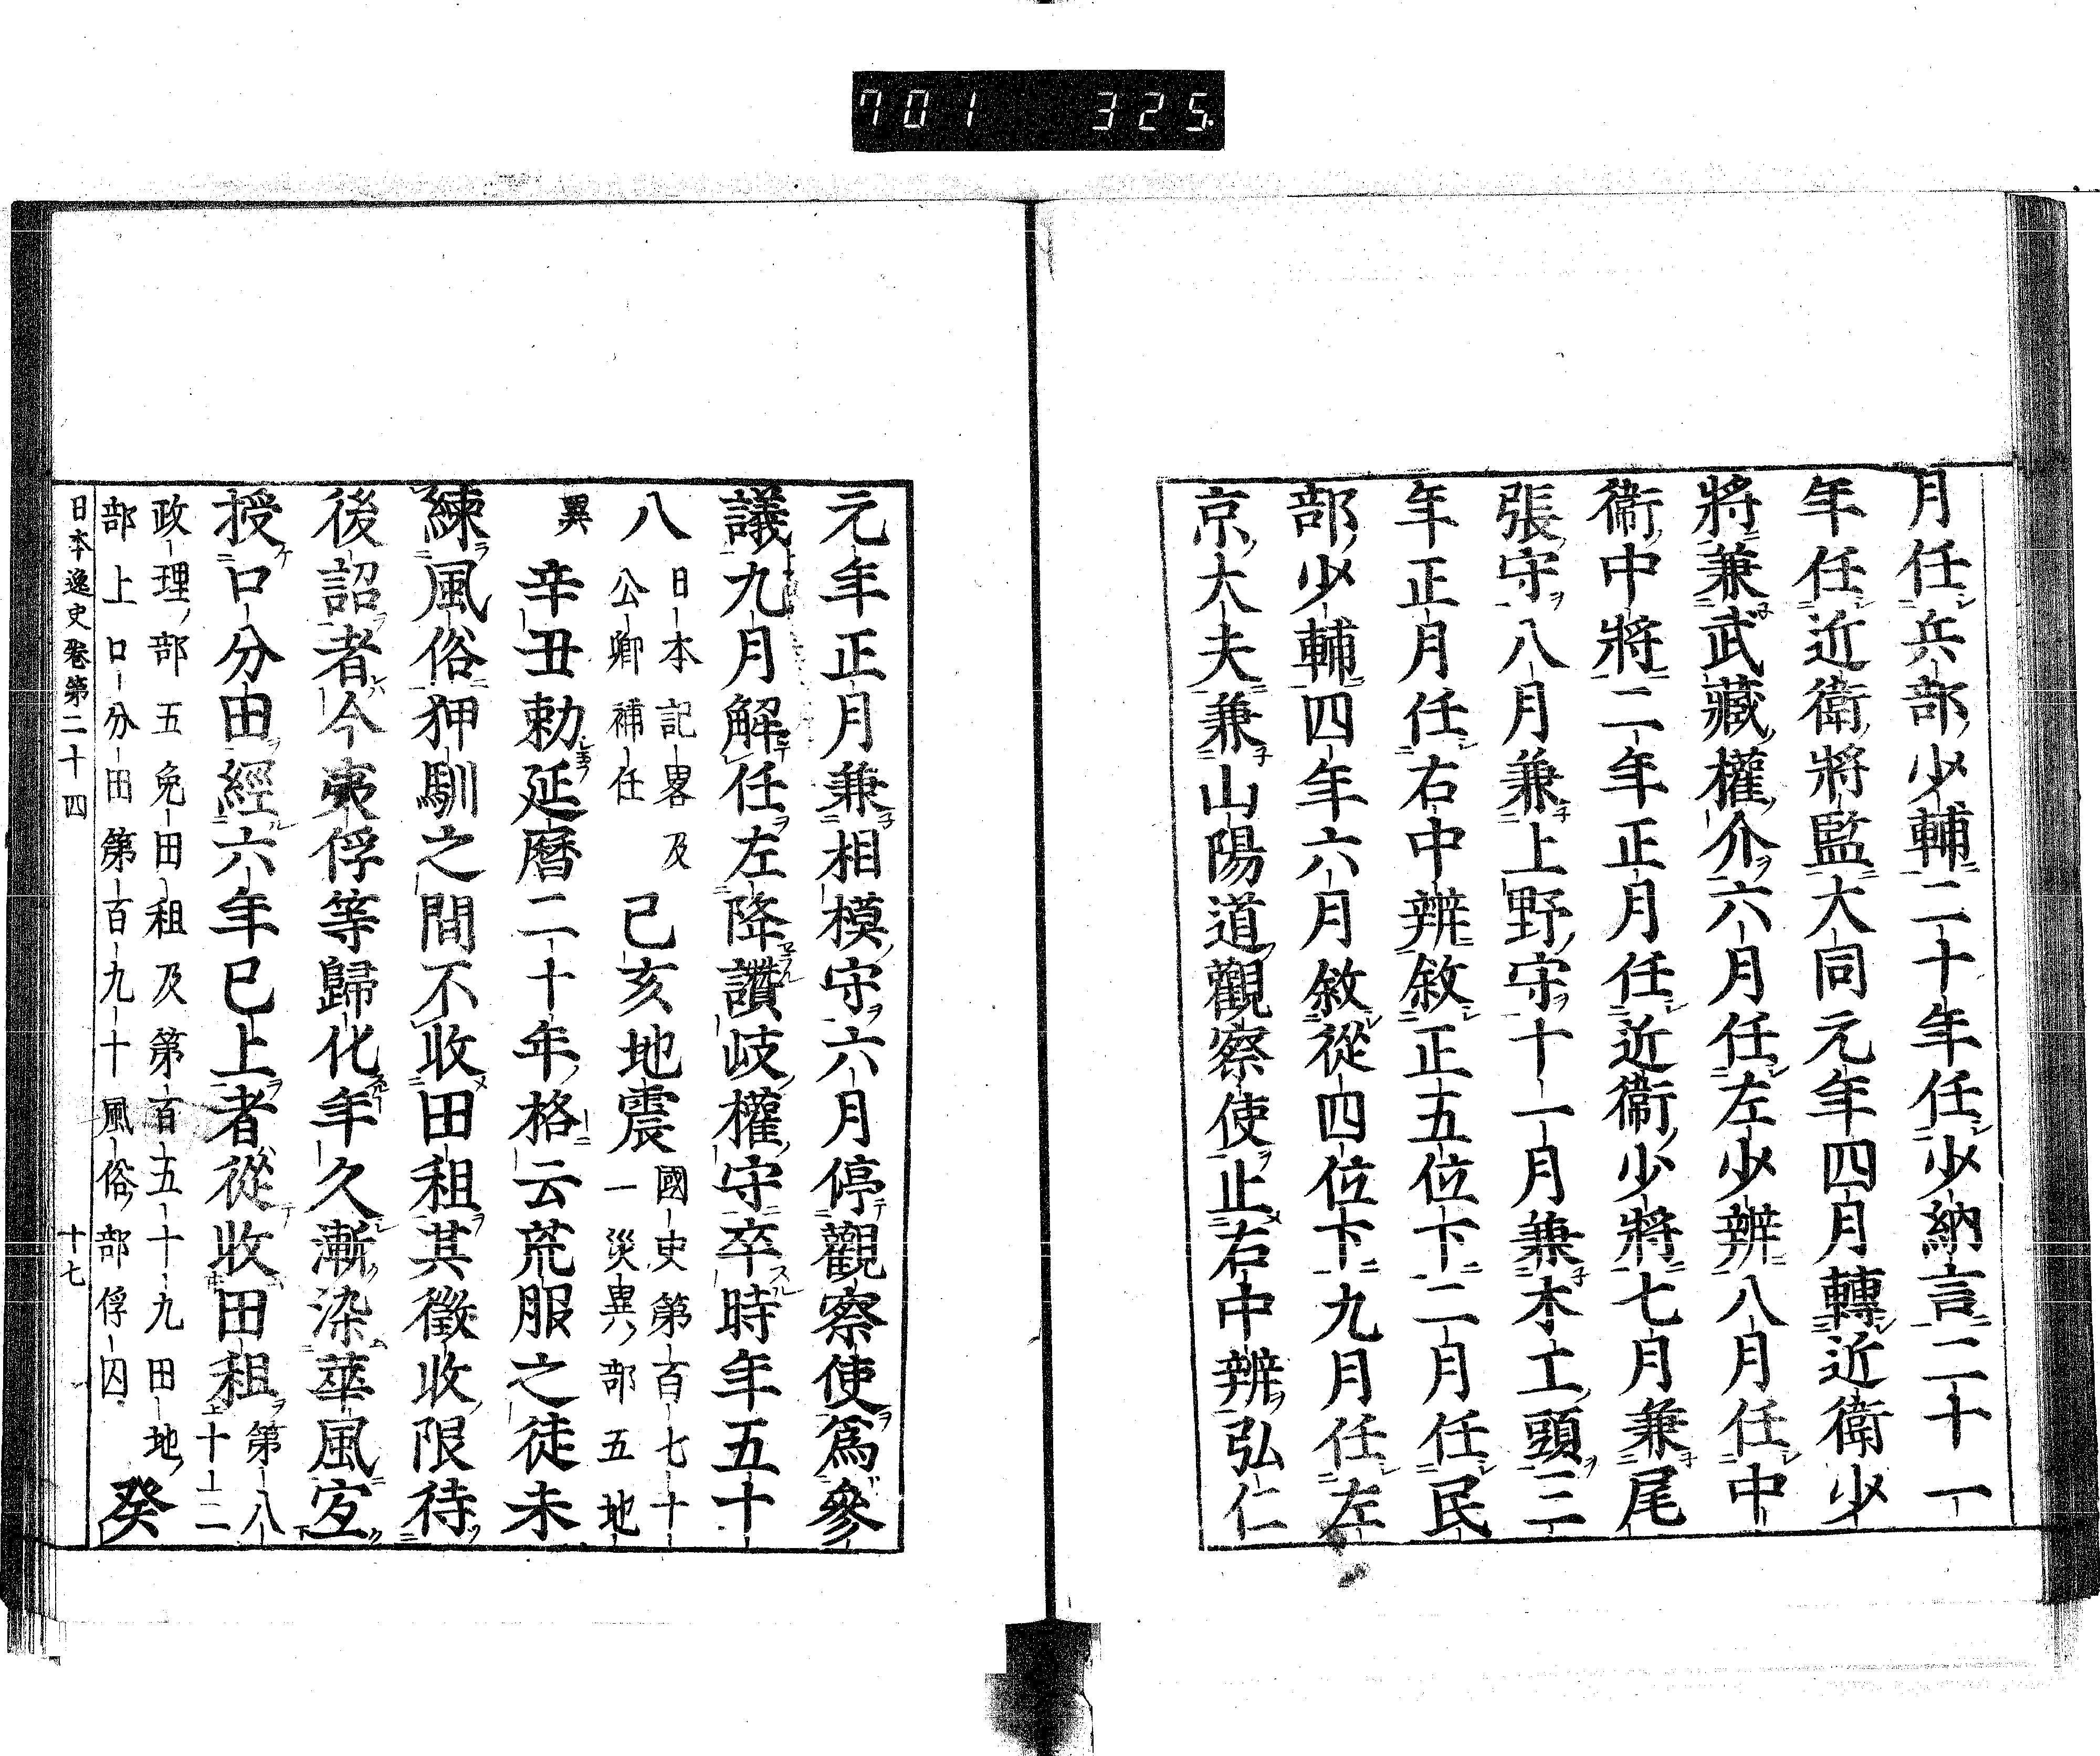 701 325
月任兵部少輔二十年任少納言二十一
年任近衛將監大同元年四月轉近衛少
將兼武藏權介六月任左少辨八月任中
衞中將二年正月任近衞少將七月兼尾
張守八月兼上野守十一月兼木工頭三
年正月任右中辨敘正五位下二月任民
部少輔四年六月敘從四位下九月任左
京大夫兼山陽道觀察使止右中辨弘仁
元年正月兼相模守六月停觀察使爲參
議九月解任左降讚岐權守卒時年五十
八
日本記畧及
公卿補任
己亥地震
國史第百七十
一災異部五地
異
辛丑勅延曆二十年格云荒服之徒未
練風俗狎馴之間不收田租其徵收限待
後詔者今夷俘等歸化年久漸染華風宐
授口分田經六年已上者從收田租
第八
十二
政理部五免田租及第百五十九田地
部上口分田第百九十風俗部俘囚
癸
日本逸史卷第二十四 十七